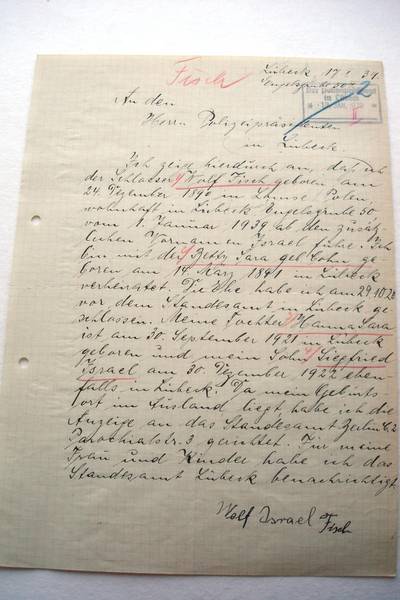 Fisch
Lübeck 17.1.39.
Engelsgrube 50
2
An den
Herrn Polizeipräsidenten
in Lübeck
Ich zeige hierdurch an, daß ich
der Schlosser Wolf Fisch geboren am
24. Dezember in Polen,
wohnhaft in Lübeck Engelsgrube 50,
vom 1. Januar 1939 ab den zusätz
lichen Vornamen Israel führe. Ich
bin mit der Betty Sara geb. Cohn ge
boren am 14. März 1891 in Lübeck
verheiratet. Die Ehe habe ich am 29.10.20
vor dem Standesamt in Lübeck ge
schlossen. Meine Tochter Hanna Sara
ist am 30. September 1921 in Lübeck
geboren und mein Sohn Siegfried
Israel am 30. Dezember 1922 eben
falls in Lübeck. Da mein Geburts
ort im Ausland liegt, habe ich die
Anzeige an das Standesamt Berlin C.2
Parochialstr. 3 gerichtet. Für meine
Frau und Kinder habe ich das
Standesamt Lübeck benachrichtigt
Wolf Israel Fisch